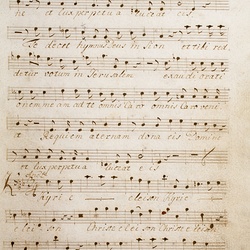 ne et lux perpetua luceat eis
Te decet hymnus Deus in Sion et tibi red
detur votum in Jerusalem exaudi orati
onem meam ad te omnis caro omnis caro veni
et Requiem aeternam dona eis Domine
et lux perpetua luceat eis
Kyri e eleison Kyrie
elei son Christe elei son Christe eleis